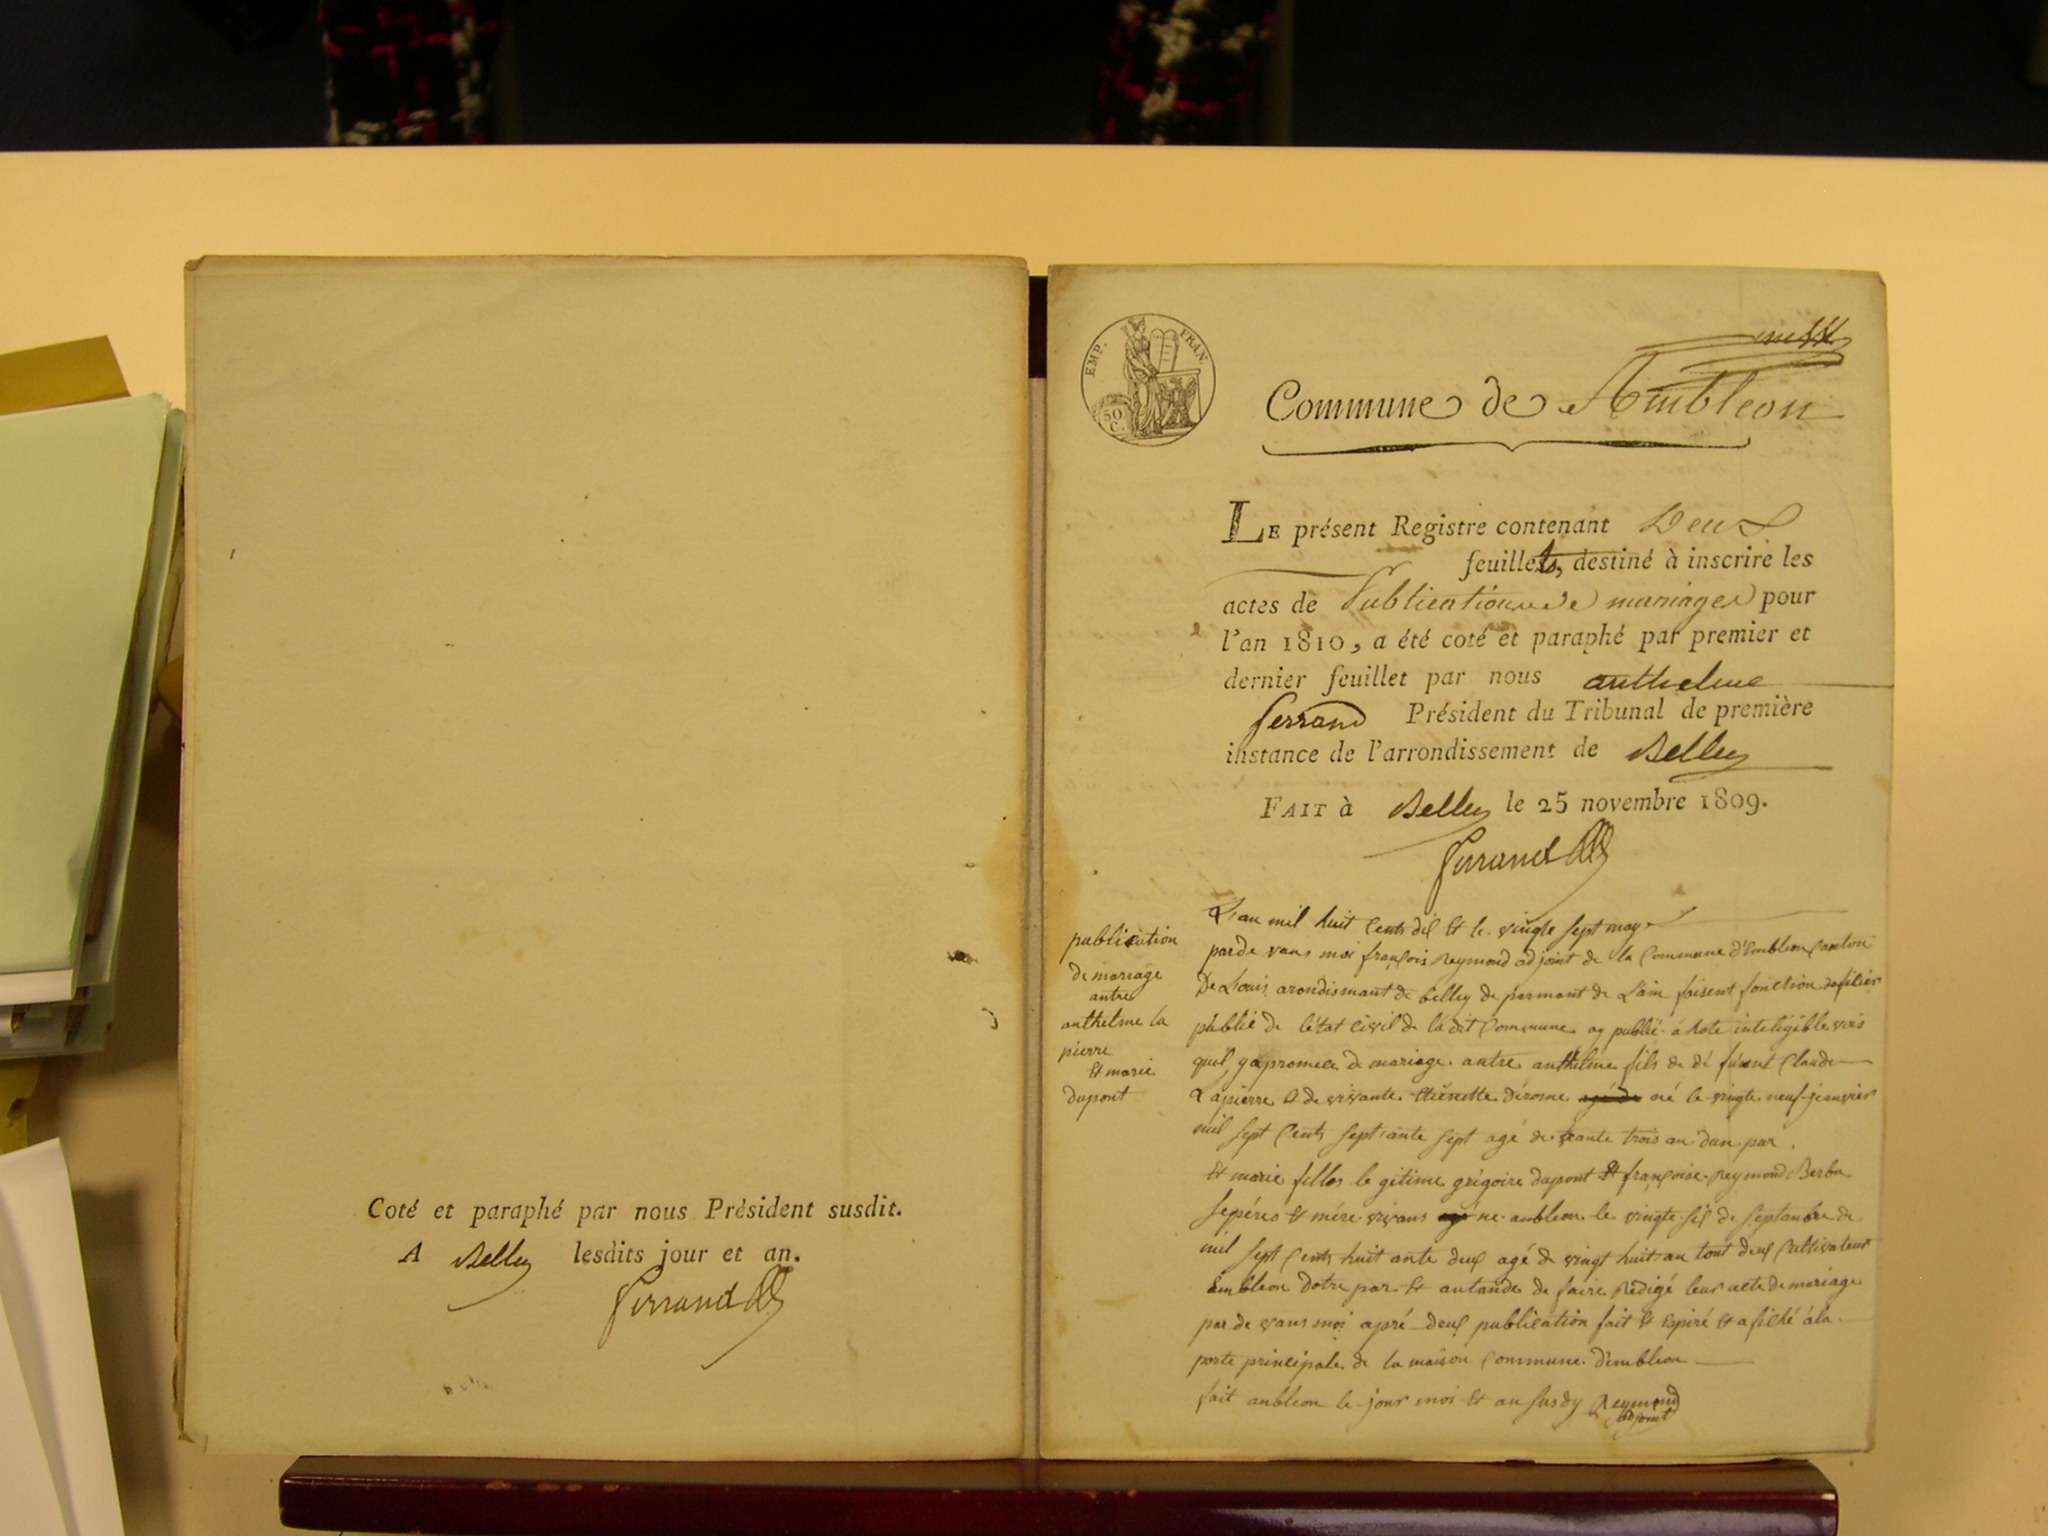 Coté et paraphé par nous Président susdit.
A Belley lesdits jour et an.
Ferrand
EMP. FRAN.
50 C.
Commune de Ambleon
LE présent Registre contenant Deux
feuillets, destiné à inscrire les
actes de Publication de mariages pour
l'an 1810, a été coté et paraphé par premier et
dernier feuillet par nous anthelme
ferrand Président du Tribunal de première
instance de l'arrondissement de Belley
FAIT à Belley le 25 novembre 1809.
Ferrand
publication
de mariage
antre
anthelme la
pierre
Et marie
dupont
L'an mil huit Cents dix Et le vingte sept may
parde vans moi françois Reymond adjoint de la Commune d'Embleon Canton
De L'ouis arondismant de belley de parmant de L'ain faisent fonction dofisier
publie de l'état Civil de la dit Commune ay publié a hote inteligible vois
quil y a promece de mariage antre anthelme fils de dé funt Claude
Lapierre & de vivante Etienette Dérome né le vingte neuf janvier
mil sept Cents septante sept agé de trante trois an dun par
Et marie filles le gitime grégoire dupont Et françoise Reymond Berba
sepéres Et mére vivans ne anbleon le vingte six de septanbre de
mil sept Cents huit ante deux agé de vingt huit an tout deux Cultivateur
Embleon Dotre par Et antande de faire Rédigé leur acte de mariage
par de vans moi apré deux publication fait Et Expiré Et afiché á la
porte principale de la maison Commune d'embleon
fait anbleon le jour moi Et an susdy Reymond
adjoint